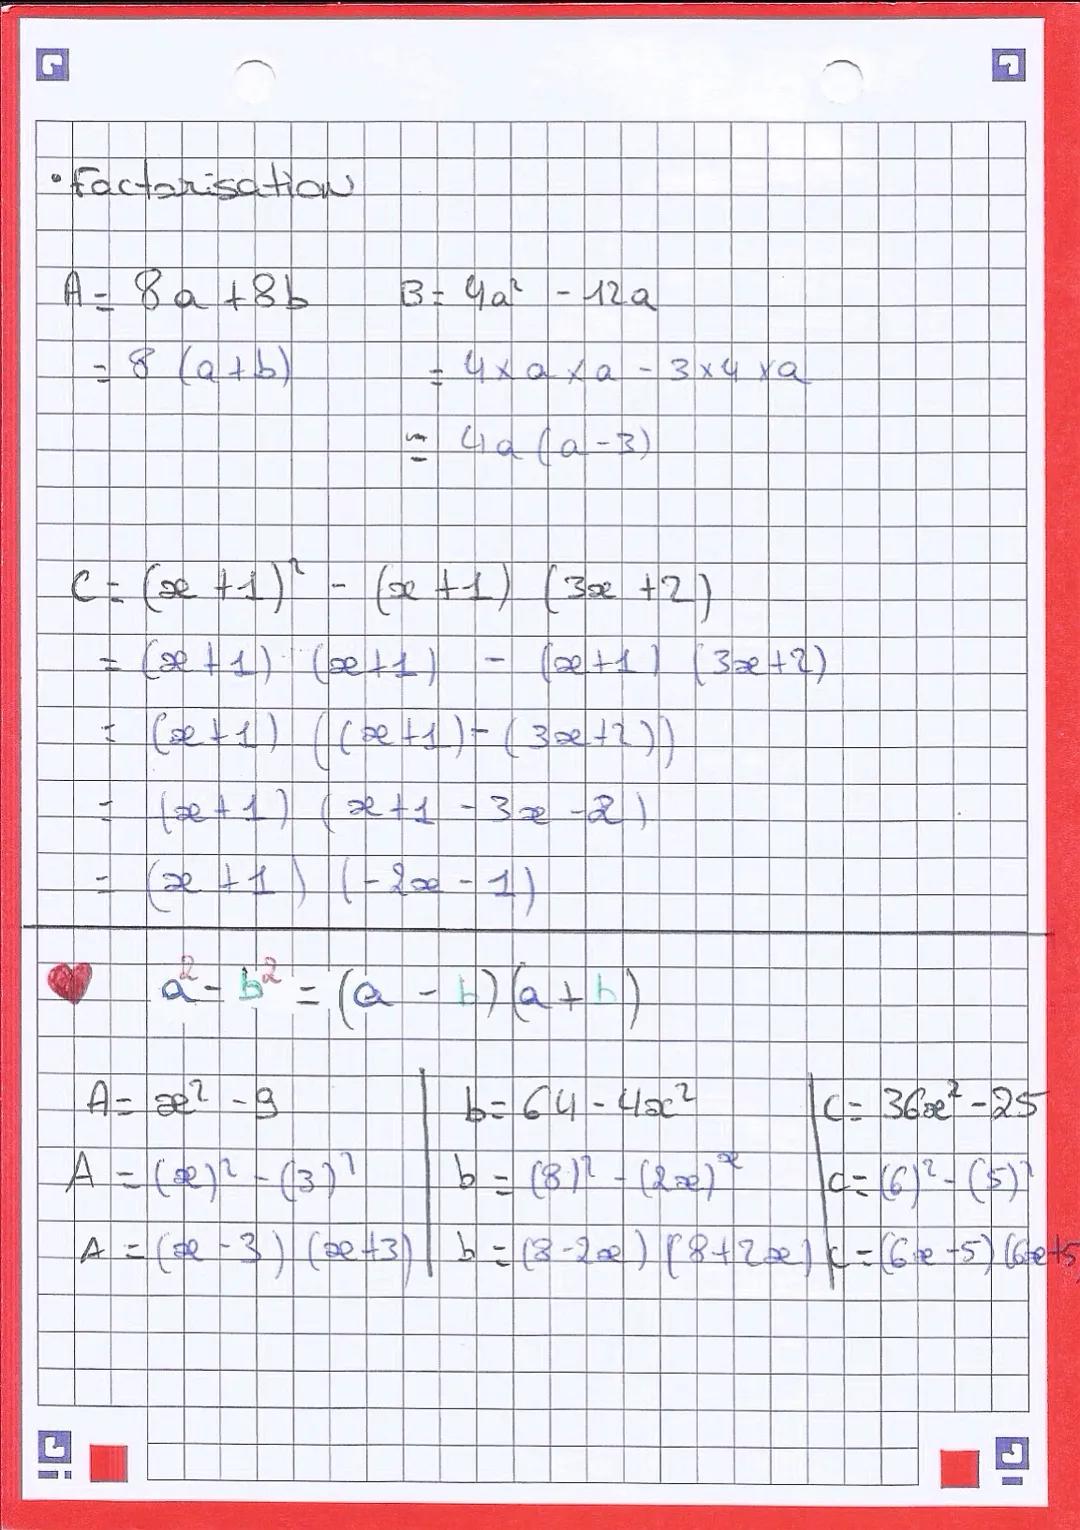 • Factorisation
A = 8a + 8b    B = 4a² - 12a
= 8 (a+b)    = 4 x a x a - 3 x 4 x a
= 4a (a-3)
C = (x+1)² - (x+1) (3x+2)
= (x+1) (x+1) - (x+1) (3x+2)
= (x+1) ((x+1) - (3x+2))
= (x+1) (x+1 - 3x - 2)
= (x+1) (-2x - 1)
a² - b² = (a - b)(a + b)
A = x² - 9    b = 64 - 4x²    c = 36x² - 25
A = (x)² - (3)²    b = (8)² - (2x)²    c = (6)² - (5)²
A = (x-3) (x+3)    b = (8-2x) (8+2x)    c = (6x-5) (6x+5)